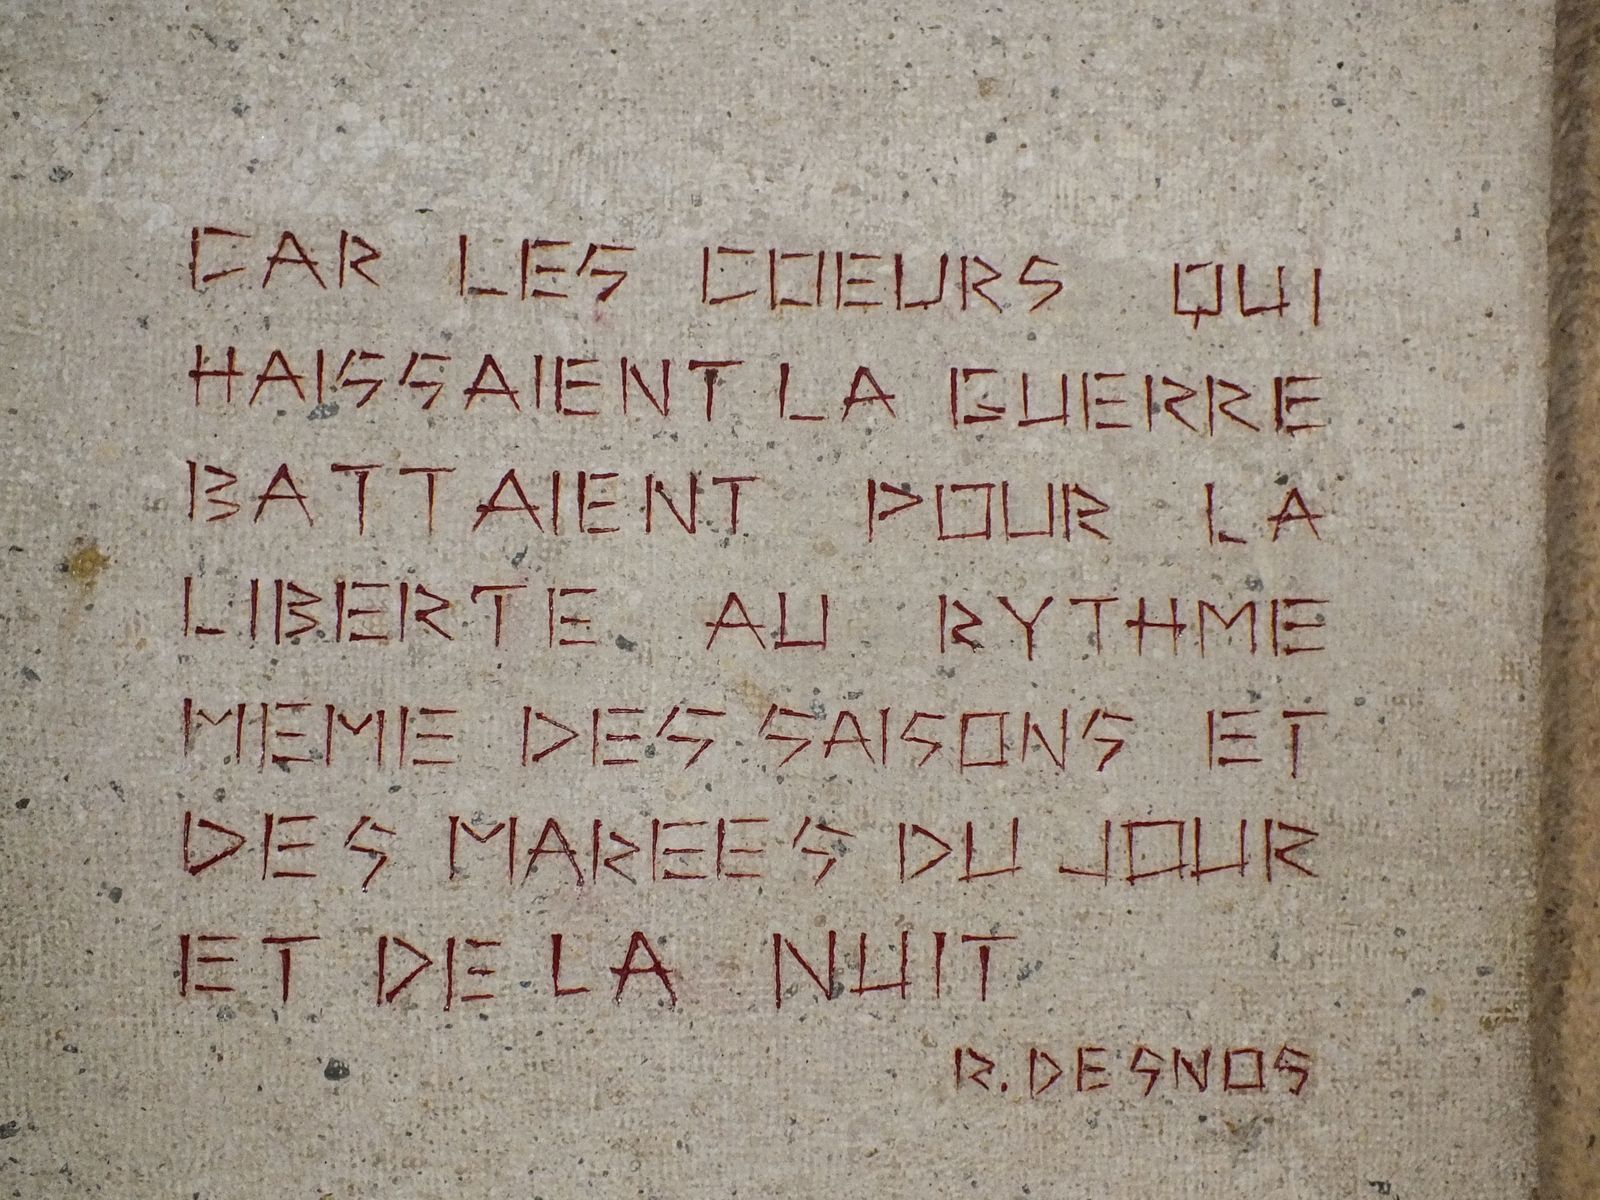 CAR LES COEURS QUI
HAISSAIENT LA GUERRE
BATTAIENT POUR LA
LIBERTE AU RYTHME
MEME DES SAISONS ET
DES MAREES DU JOUR
ET DE LA NUIT
R. DESNOS